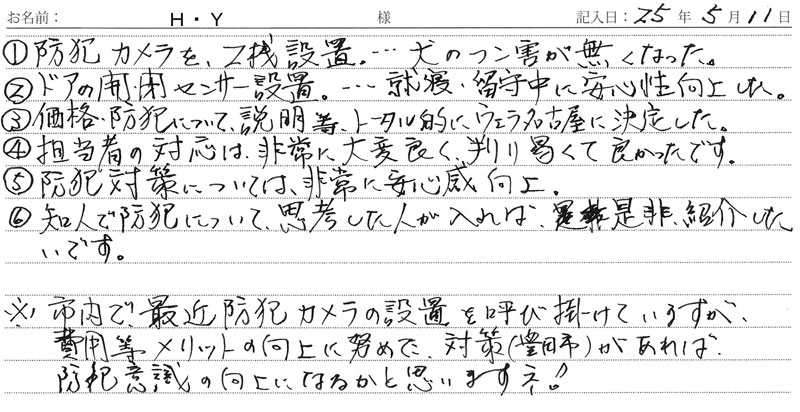 お名前： H・Y 様 記入日：25年5月11日
①防犯カメラを、2機設置。…犬のフン害が無くなった。
②ドアの開・閉センサー設置。…就寝・留守中に安心性向上した。
③価格・防犯について、説明等、トータル的にウェラ名古屋に決定した。
④担当者の対応は、非常に大変良く、判り易くて良かったです。
⑤防犯対策については、非常に安心感向上。
⑥知人で防犯について、思考した人が入れば、是非、紹介した
いです。
※市内で、最近防犯カメラの設置を呼び掛けていますが、
費用等メリットの向上に努めた、対策(豊田市)があれば、
防犯意識の向上になるかと思いますネ!!